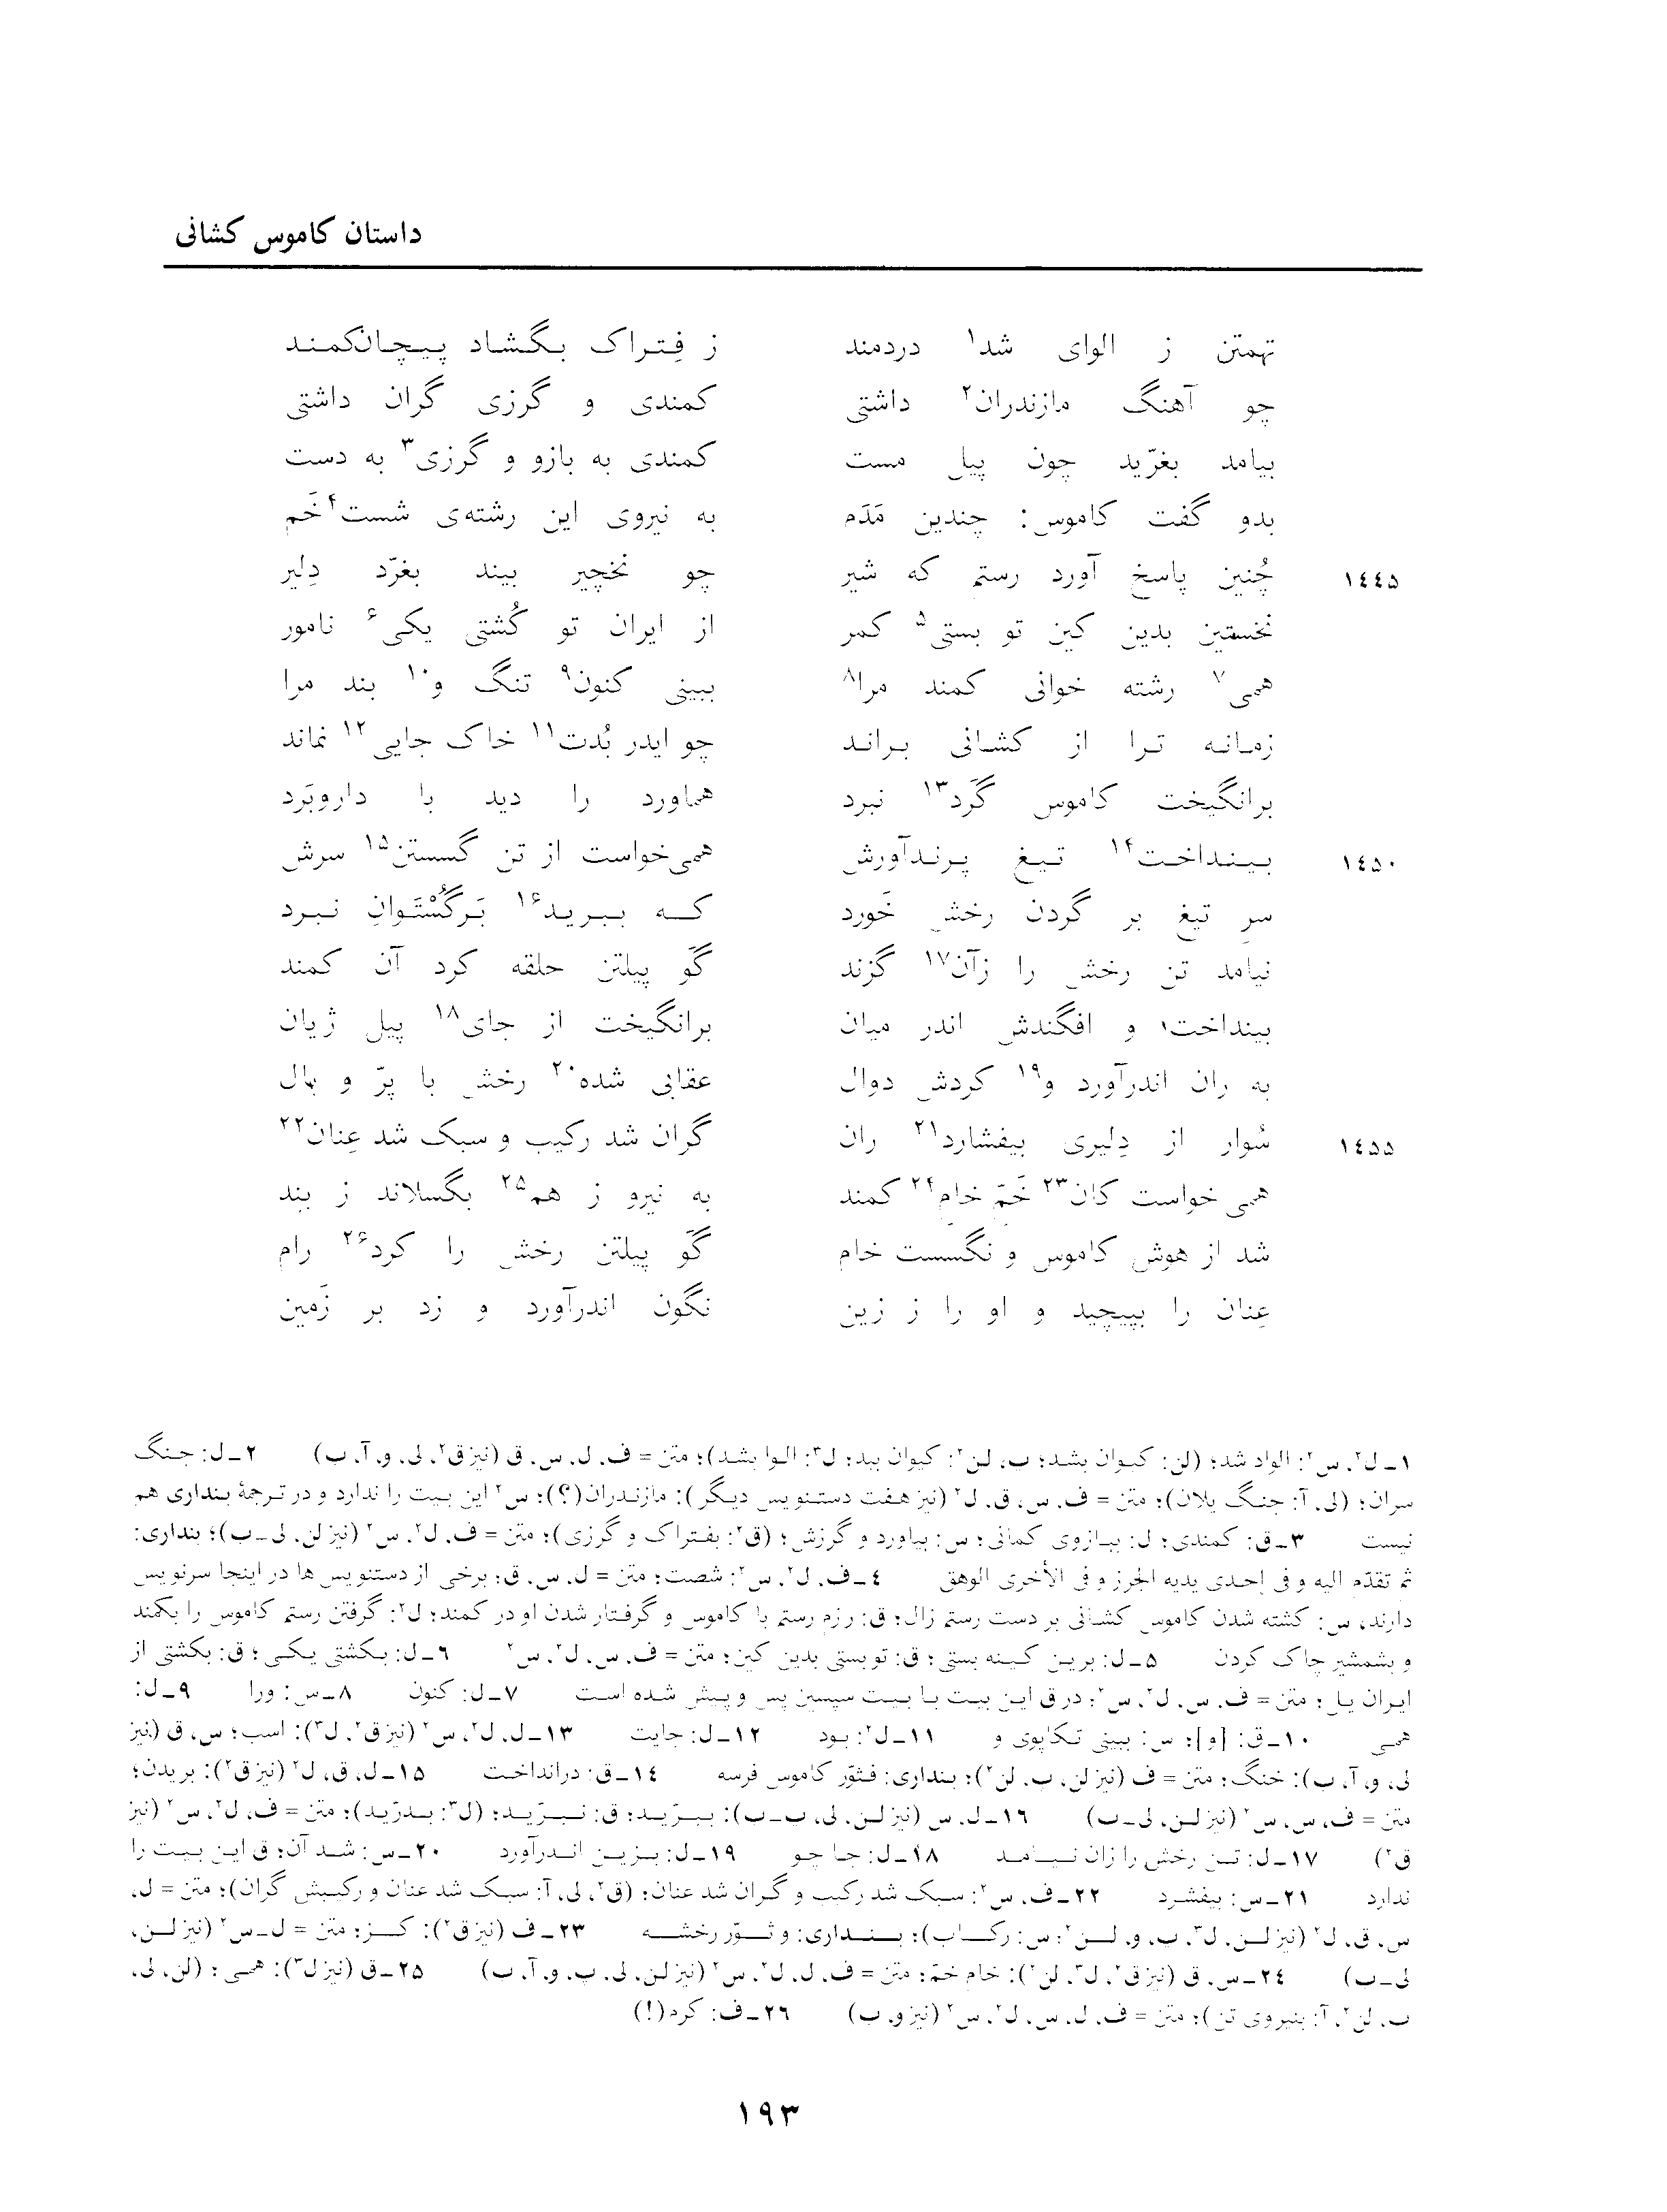 داستان کاموس کشانی
تهمتن ز الوای شد۱ دردمند ز فِتراک بگشاد پیچان‌کمند
چو آهنگ مازندران۲ داشتی کمندی و گرزی گران داشتی
بیامد بغرّید چون پیل مست کمندی به بازو و گرزی۳ به دست
بدو گفت کاموس: چندین مَدَم به نیروی این رشته‌ی شست۴ خَم
۱٤٤۵ چُنین پاسخ آورد رستم که شیر چو نخچیر بیند بغرّد دِلیر
نخستین بدین کین تو بستی۵ کمر از ایران تو کُشتی یکی۶ نامور
همی۷ رشته خوانی کمند مرا۸ ببینی کنون۹ تنگ و۱۰ بند مرا
زمانه ترا از کشانی براند چو ایدر بُدت۱۱ خاک جایی۱۲ نماند
برانگیخت کاموس گَرد۱۳ نبرد هماورد را دید با داروبَرد
۱٤۵۰ بینداخت۱۴ تیغ پرندآورش همی‌خواست از تن گسستن۱۵ سرش
سرِ تیغ بر گردن رخش خَورد که ببرید۱۶ بَرگُسْتَوانِ نبرد
نیامد تن رخش را زآن۱۷ گزند گَو پیلتن حلقه کرد آن کمند
بینداخت و افگندش اندر میان برانگیخت از جای۱۸ پیل ژیان
به ران اندرآورد و۱۹ کردش دوال عقابی شده۲۰ رخش با پرّ و بال
۱٤۵۵ سُوار از دِلیری بیفشارد۲۱ ران گران شد رکیب و سبک شد عِنان۲۲
همی خواست کان۲۳ خَمّ خام۲۴ کمند به نیرو ز هم۲۵ بگسلاند ز بند
شد از هوش کاموس و نگسست خام گَو پیلتن رخش را کرد۲۶ رام
عِنان را بپیچید و او را ز زین نگون اندرآورد و زد بر زَمین
۱ـ ل۲، س۲: الواد شد؛ (لن: کیوان بشد؛ ب، لن۲: کیوان ببد؛ ل۳: الوا بشد)؛ متن = ف، ل، س، ق (نیز ق۲، لی، و، آ، ب) ۲ـ ل: جنگ
سران؛ (لی، آ: جنگ یلان)؛ متن = ف، س، ق، ل۲ (نیز هفت دستنویس دیگر)؛ مازندران(؟)؛ س۲ این بیت را ندارد و در ترجمهٔ بنداری هم
نیست ۳ـ ق: کمندی؛ ل: ببازوی کمانی؛ س: بیاورد و گرزش؛ (ق۲: بفتراک و گرزی)؛ متن = ف، ل۲، س۲ (نیز لن، لی‌ـب)؛ بنداری:
ثم تقدّم الیه و فی إحدی یدیه الجرز و فی الأخری الوهق ٤ـ ف، ل۲، س۲: شصت؛ متن = ل، س، ق؛ برخی از دستنویس ها در اینجا سرنویس
دارند، س: کشته شدن کاموس کشانی بر دست رستم زال؛ ق: رزم رستم با کاموس و گرفتار شدن او در کمند؛ ل۲: گرفتن رستم کاموس را بکمند
و بشمشیر چاک کردن ۵ـ ل: برین کینه بستی؛ ق: تو بستی بدین کین؛ متن = ف، س، ل۲، س۲ ٦ـ ل: بکشتی یکی؛ ق: بکشتی از
ایران یل؛ متن = ف، س، ل۲، س۲؛ در ق این بیت با بیت سپسین پس و پیش شده است ۷ـ ل: کنون ۸ـ س: ورا ۹ـ ل:
همی ۱۰ـ ق: [و]؛ س: ببینی تکاپوی و ۱۱ـ ل۲: بود ۱۲ـ ل: جایت ۱۳ـ ل، ل۲، س۲ (نیز ق۲، ل۳): اسب؛ س، ق (نیز
لی، و، آ، ب): خنگ؛ متن = ف (نیز لن، ب، لن۲)؛ بنداری: فثوّر کاموس فرسه ۱٤ـ ق: درانداخت ۱۵ـ ل، ق، ل۲ (نیز ق۲): بریدن؛
متن = ف، س، س۲ (نیز لن، لی‌ـب) ۱٦ـ ل، س (نیز لن، لی، ب‌ـب): ببرّید؛ ق: نبرّید؛ (ل۳: بدرّید)؛ متن = ف، ل۲، س۲ (نیز
ق۲) ۱۷ـ ل: تن رخش را زان نیامد ۱۸ـ ل: جا چو ۱۹ـ ل: بزین اندرآورد ۲۰ـ س: شد آن؛ ق این بیت را
ندارد ۲۱ـ س: بیفشرد ۲۲ـ ف، س۲: سبک شد رکیب و گران شد عنان؛ (ق۲، لی، آ: سبک شد عنان و رکیبش گران)؛ متن = ل،
س، ق، ل۲ (نیز لن، ل۳، ب، و، لن۲؛ س: رکاب)؛ بنداری: و ثوّر رخشه ۲۳ـ ف (نیز ق۲): کز؛ متن = ل‌ـس۲ (نیز لن،
لی‌ـب) ۲٤ـ س، ق (نیز ق۲، ل۳، لن۲): خام خمّ؛ متن = ف، ل، ل۲، س۲ (نیز لن، لی، پ، و، آ، ب) ۲۵ـ ق (نیز ل۳): همی؛ (لن، لی،
ب، لن۲، آ: بنیروی تن)؛ متن = ف، ل، س، ل۲، س۲ (نیز و، ب) ۲٦ـ ف: کرم(!)
۱۹۳